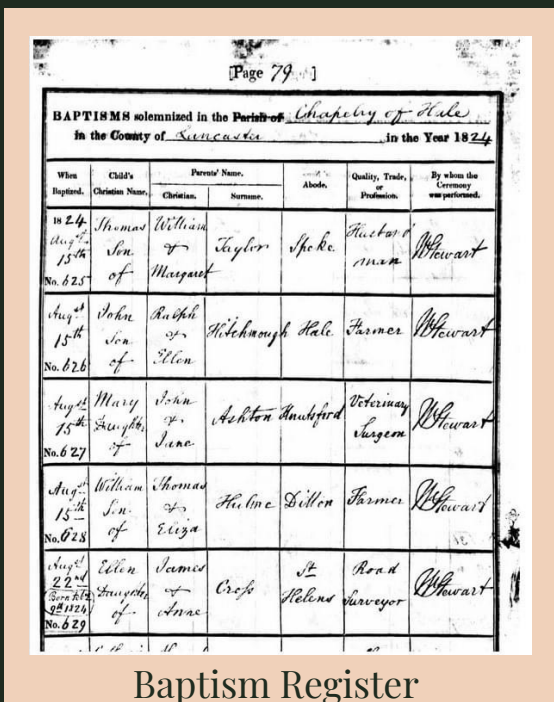 [Page 79 ]
BAPTISMS solemnized in the Parish of Chapelry of Hale
in the County of Lancaster in the Year 1824
When Baptized. Child's Christian Name. Parents' Name. Christian. Surname. Abode. Quality, Trade, or Profession. By whom the Ceremony was performed.
1824 Augst 15th No. 625 Thomas Son of William & Margaret Taylor Speke Husbandman W Stewart
Augst 15th No. 626 John Son of Ralph & Ellen Hitchmough Hale Farmer W Stewart
Augst 15th No. 627 Mary Daughter of John & Jane Ashton Knutsford Veterinary Surgeon W Stewart
Augst 15th No. 628 William Son of Thomas & Eliza Hulme Ditton Farmer W Stewart
Augst 22nd Born 9th 1824 No. 629 Ellen Daughter of James & Anne Cross St Helens Road Surveyor W Stewart
Baptism Register